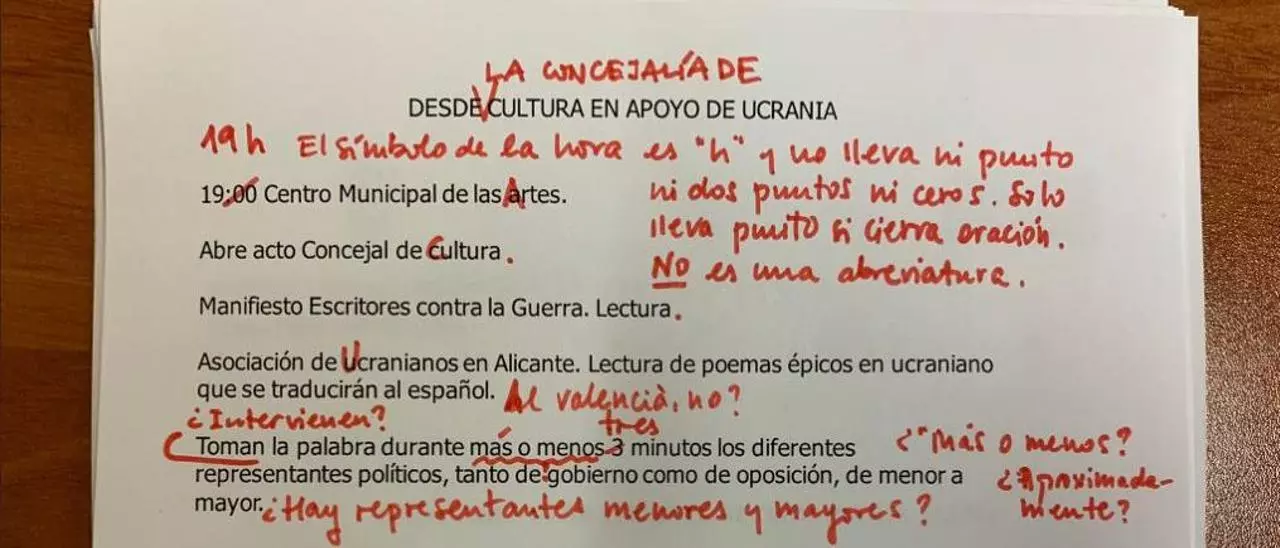 LA CONCEJALÍA DE
DESDE CULTURA EN APOYO DE UCRANIA
19h El símbolo de la hora es "h" y no lleva ni punto
19:00 Centro Municipal de las Artes.
ni dos puntos ni ceros. Solo
lleva punto si cierra oración.
Abre acto Concejal de Cultura.
NO es una abreviatura.
Manifiesto Escritores contra la Guerra. Lectura.
Asociación de Ucranianos en Alicante. Lectura de poemas épicos en ucraniano
que se traducirán al español. Al valencià, no?
¿Intervienen? tres
Toman la palabra durante más o menos 3 minutos los diferentes ¿"Más o menos?
representantes políticos, tanto de gobierno como de oposición, de menor a ¿Aproximada-
mayor. ¿Hay representantes menores y mayores? mente?